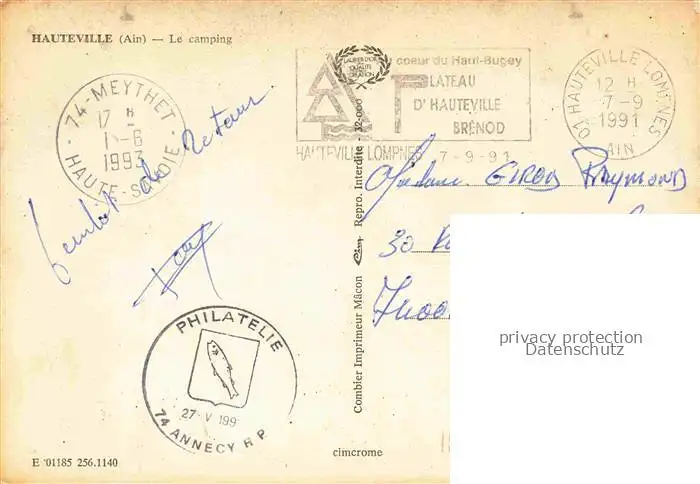 HAUTEVILLE (Ain) — Le camping
74 - MEYTHET
17 H
1 - 6
1993
HAUTE-SAVOIE
de retour
PHILATELIE
27 V 199
74 ANNECY R P
E 01185 256.1140
LAURIER D'OR
QUALITE
CREATION
coeur du Haut-Bugey
PLATEAU
D'HAUTEVILLE
BRÉNOD
HAUTEVILLE LOMPNES 7-9-91
01 HAUTEVILLE LOMPNES
12 H
7-9
1991
AIN
Combier Imprimeur Mâcon Cim Repro. Interdite - 32-000
Madame GIROD Raymond
30
74000
cimcrome
privacy protection
Datenschutz